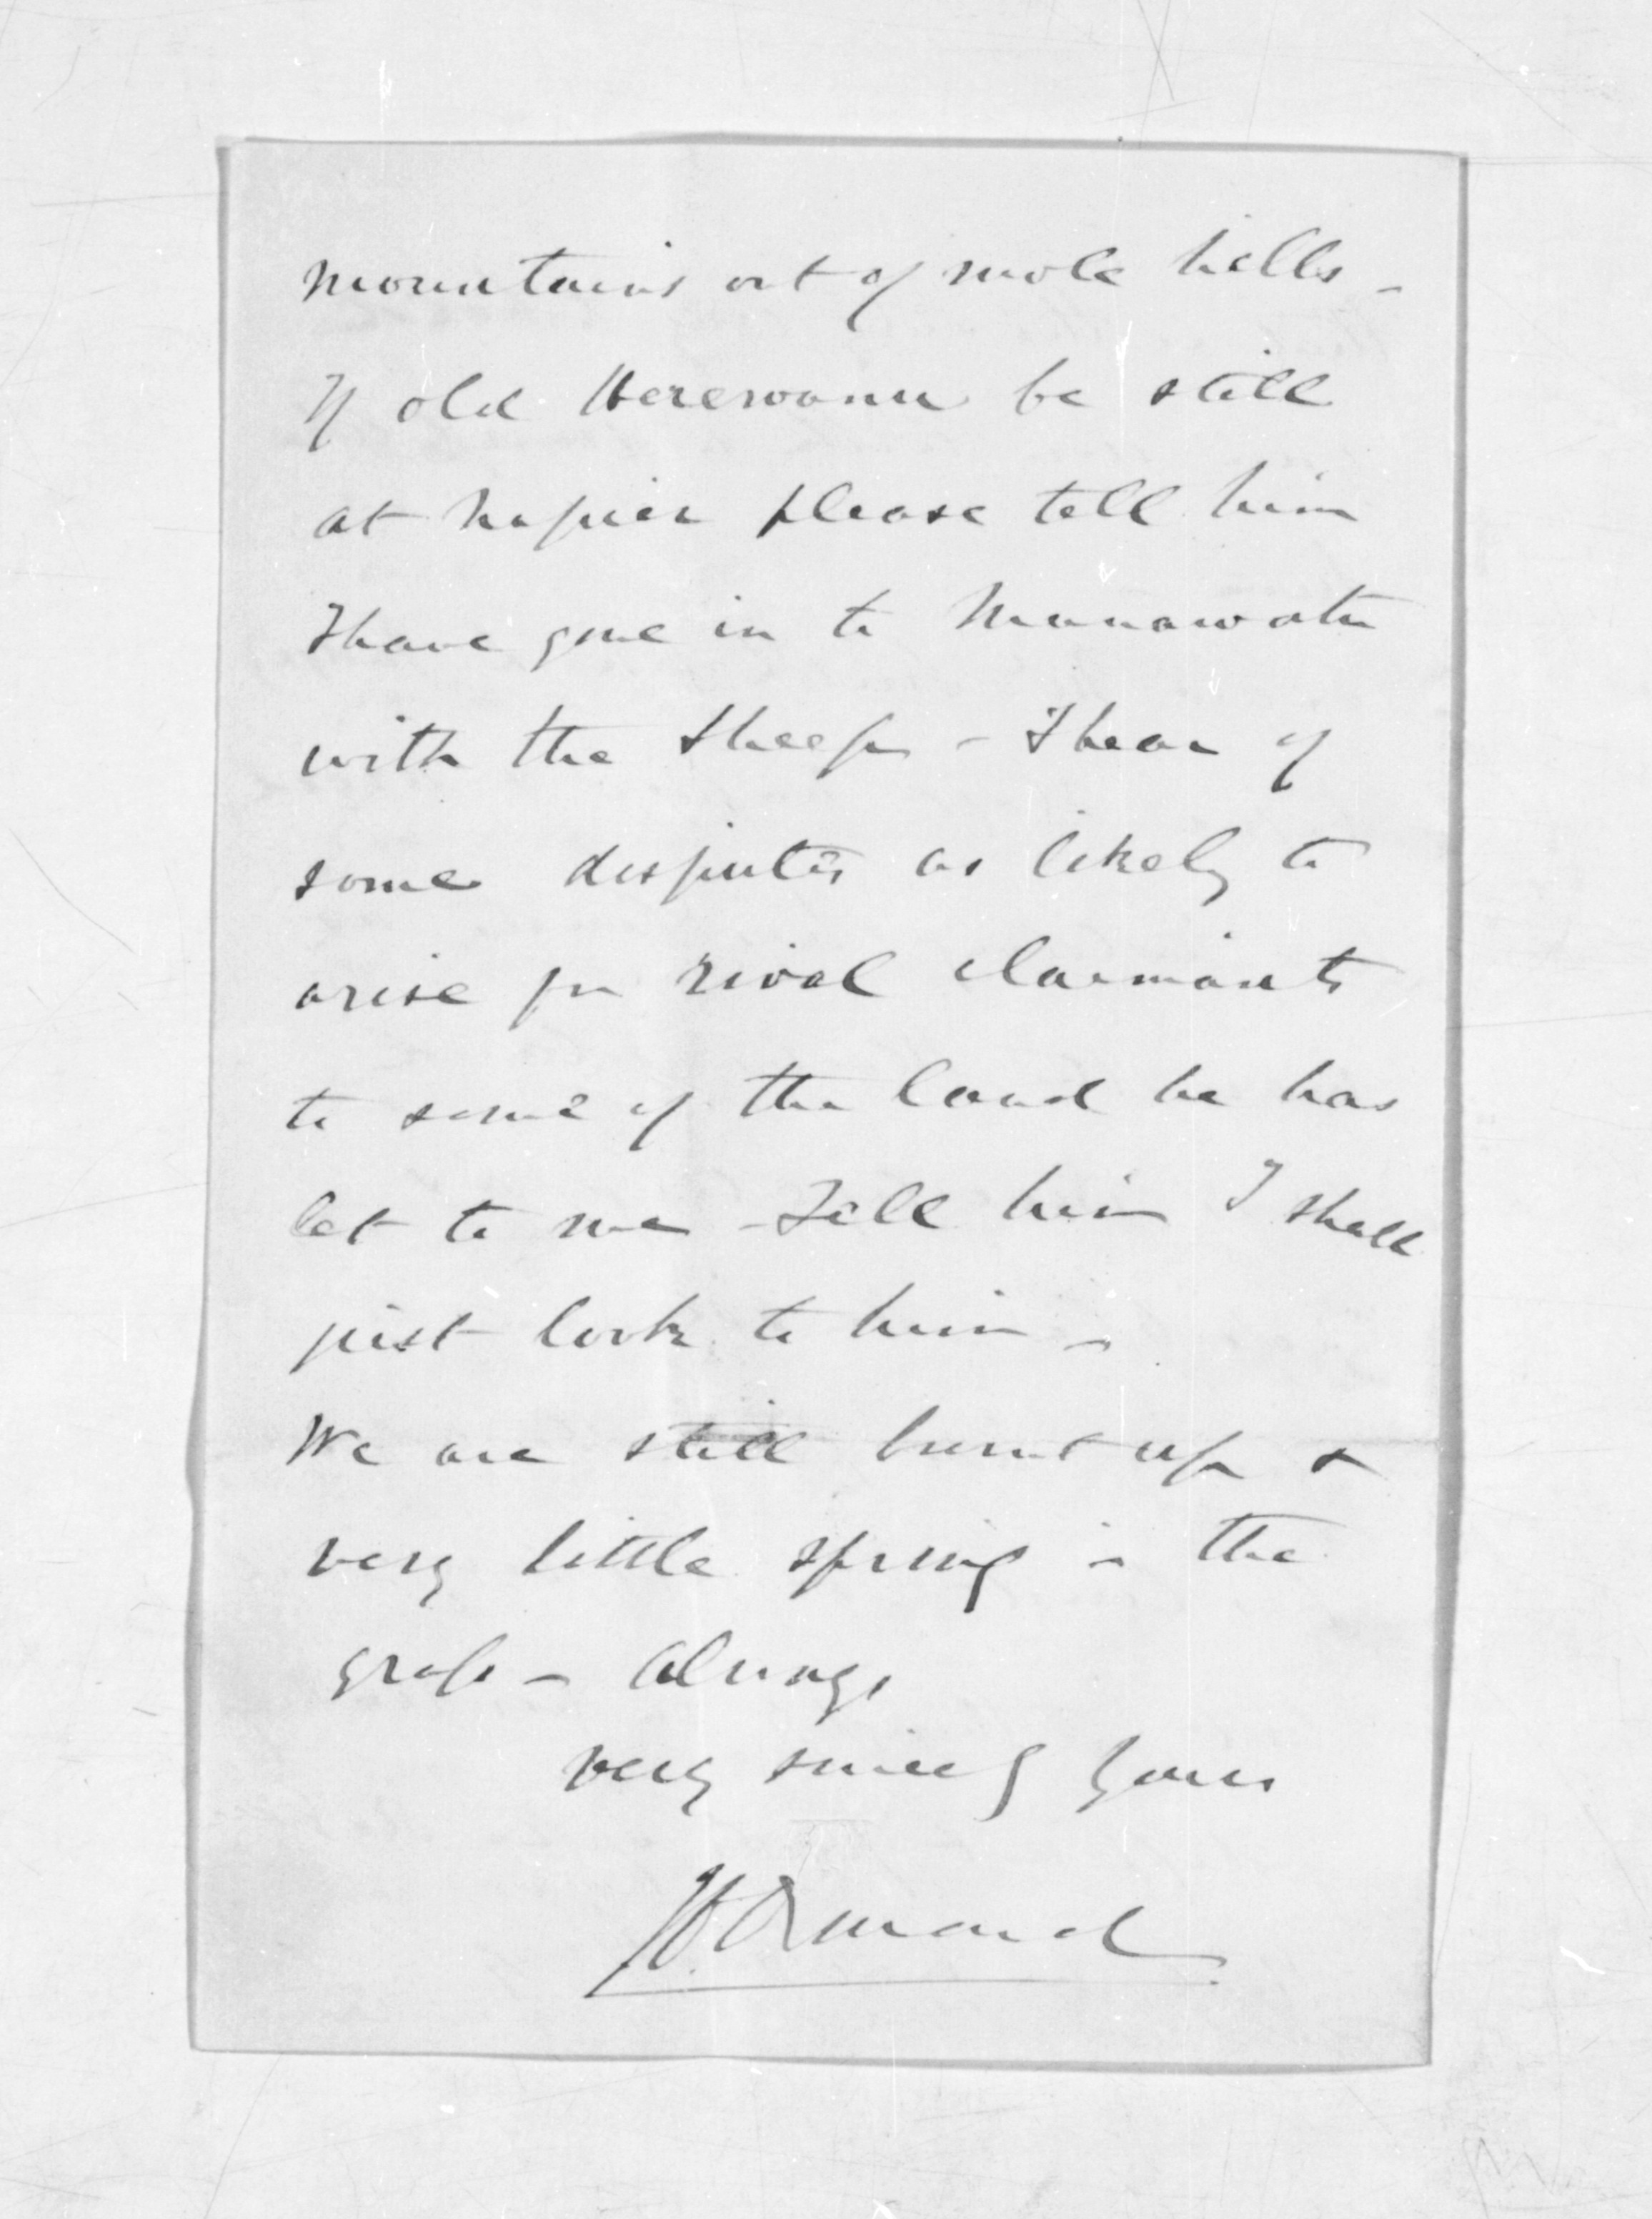 mountains out of mole hills -
If old Herewanu be still
at Napier please tell him
I have gone in to Manawatu
with the Sheep - I hear of
some disputes as likely to
arise fm rival claimants
to some of the land he has
let to me - Tell him I shall
just look to him -
We are still burnt up &
very little spring in the
grass - Always
very sincely yours
Ormond